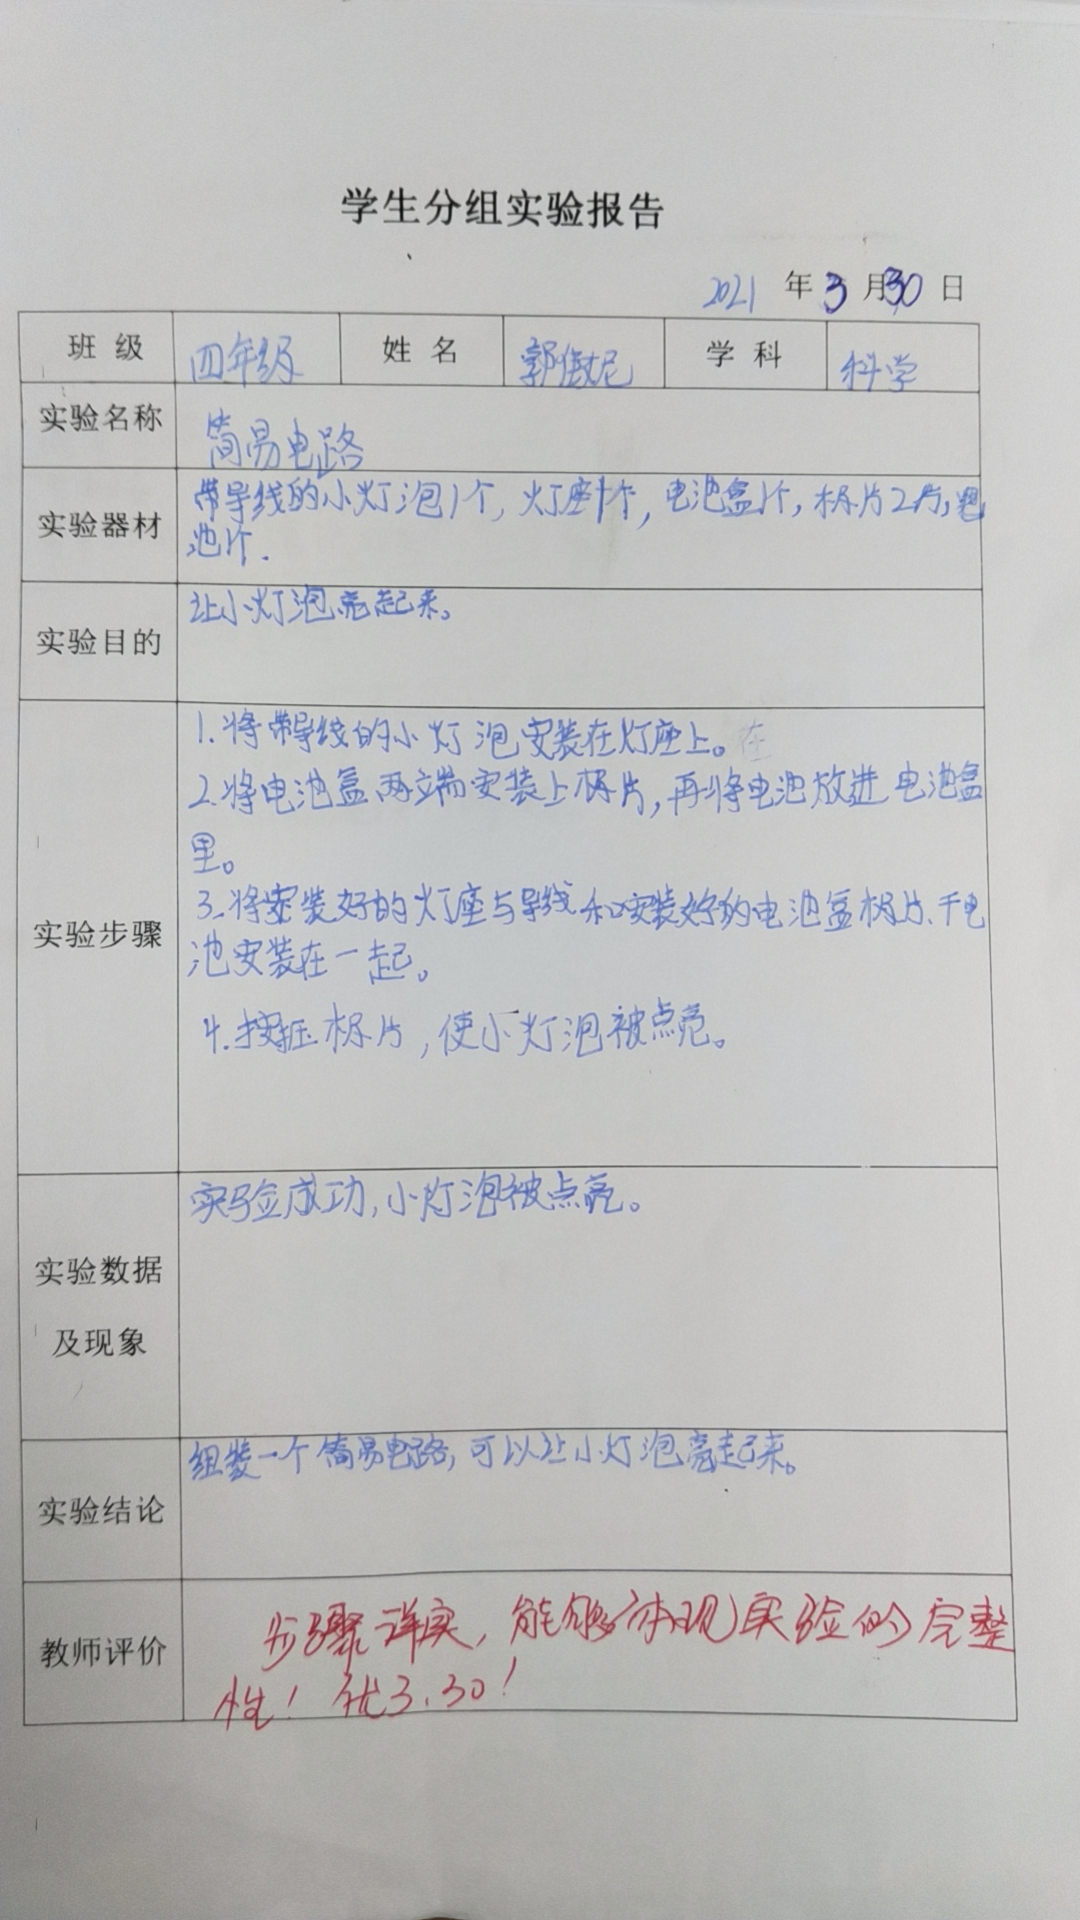 学生分组实验报告
2021 年 3 月 30 日
班级 四年级 姓名 郭傲妮 学科 科学
实验名称 简易电路
实验器材 带导线的小灯泡1个，灯座1个，电池盒1个，标片2片，电
池1个.
实验目的 让小灯泡亮起来。
1.将带导线的小灯泡安装在灯座上。在
2.将电池盒两端安装上标片，再将电池放进电池盒
里。
实验步骤 3.将安装好的灯座与导线和安装好的电池盒标片、干电
池安装在一起。
4.按压标片，使小灯泡被点亮。
实验数据
及现象
实验成功，小灯泡被点亮。
实验结论 组装一个简易电路，可以让小灯泡亮起来。
教师评价 步骤详实，能够体现实验的完整
性！优3.30！